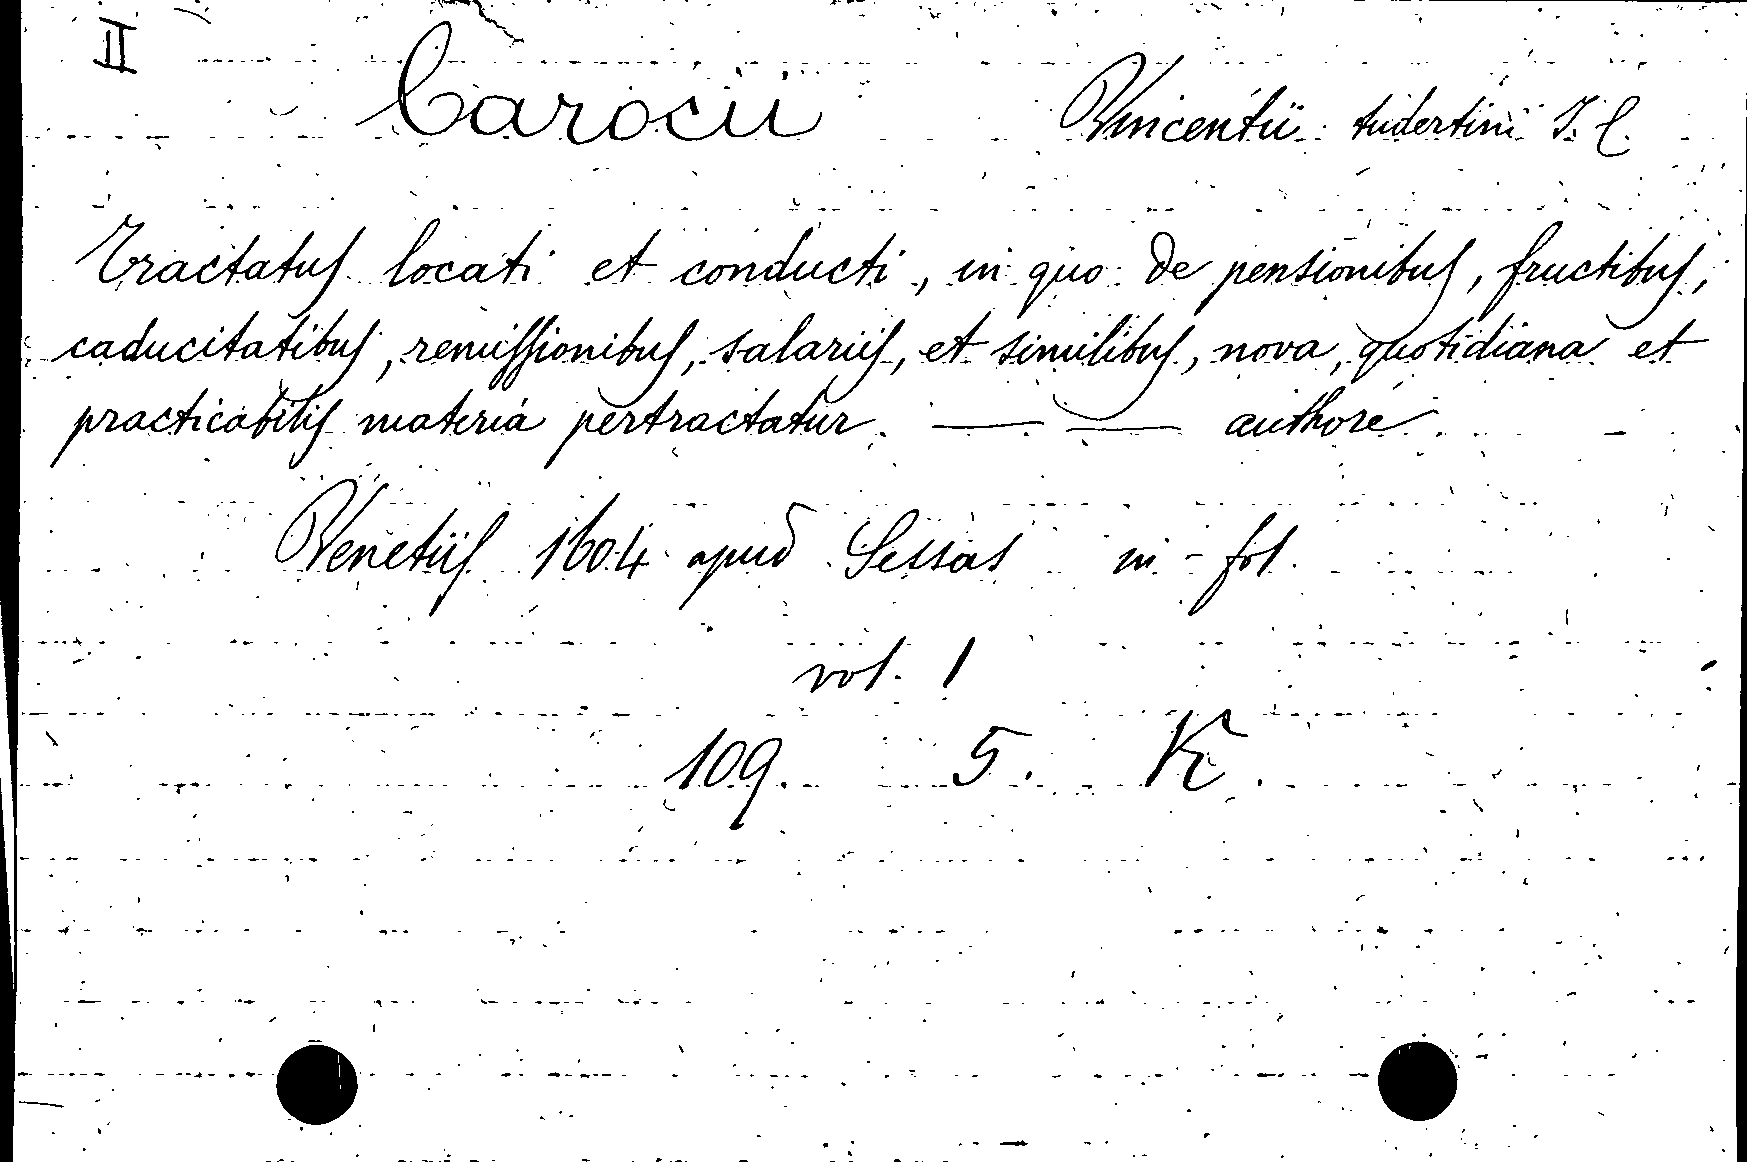 II
Carocii Vincentii tudertini J. C.
Tractatus locati et conducti, in quo de pensionibus, fructibus,
caducitatibus, remissionibus, salariis, et similibus, nova, quotidiana et
practicabilis materia pertractatur. — — authore
Venetiis 1604 apud Sessas in-fol.
vol. 1
109. 5. K.